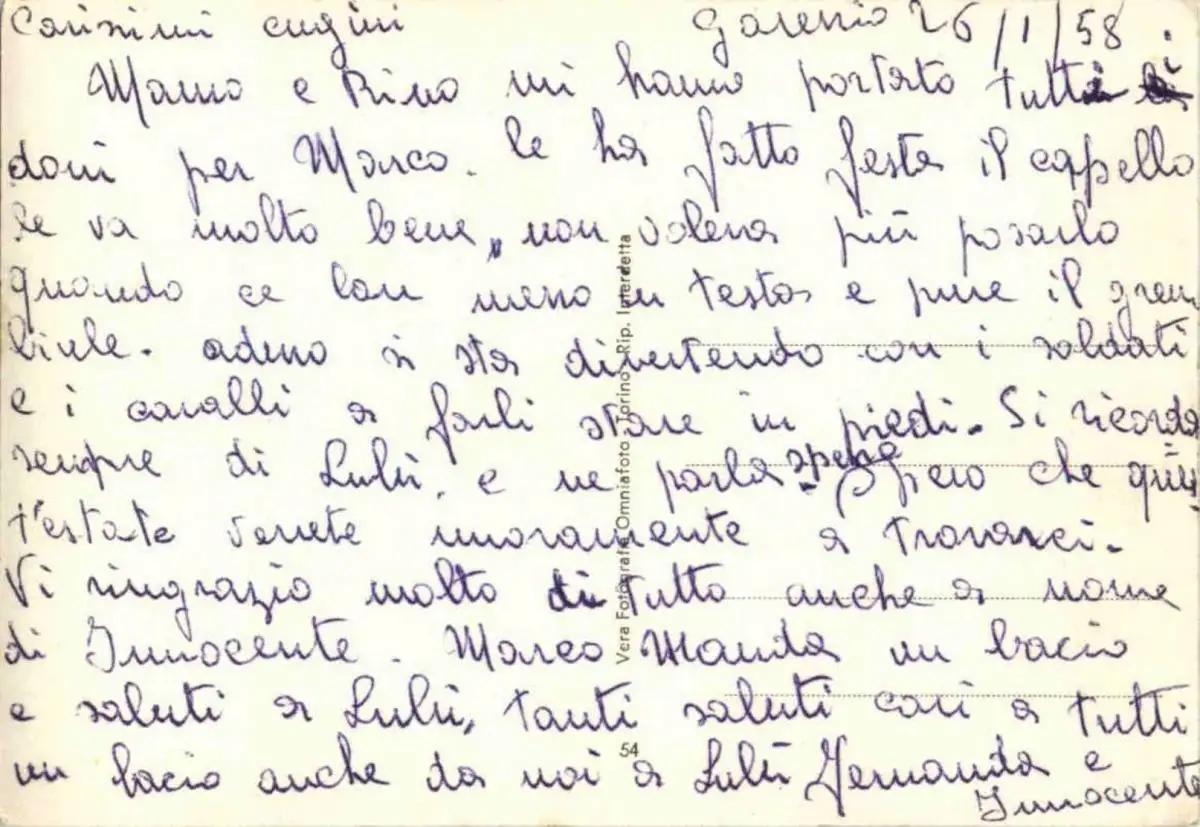 Carissimi cugini Garessio 26/1/58.
Mauro e Rino mi hanno portato tutti i
doni per Marco. le ha fatto festa il cappello
le va molto bene, non voleva più posarlo
quando ce lan messo in testa e pure il grem
biule. adesso si sta divertendo con i soldati
e i cavalli a farli stare in piedi. Si ricorda
sempre di Lulù. e ne parla spesso
Spero che ques
t'estate venete nuovamente a trovarci.
Vi ringrazio molto di tutto anche a nome
di Innocente. Marco Manda un bacio
e saluti a Lulù, tanti saluti cari a tutti
un bacio anche da noi a Lulù Fernanda e
Innocente
Vera Fotografia Omniafoto - Torino - Rip. Interdetta
54